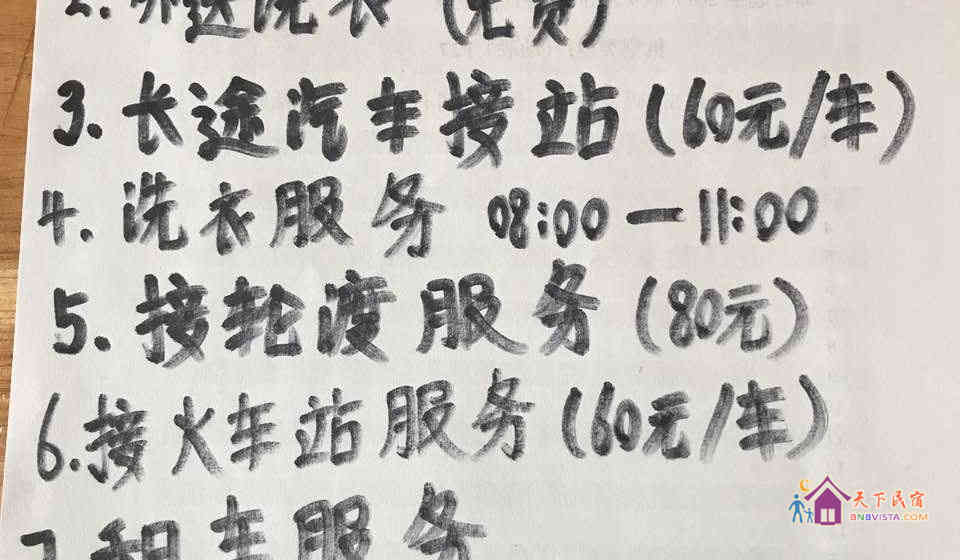 洗衣 (免费)
3. 长途汽车接站 (60元/车)
4. 洗衣服务 08:00 — 11:00
5. 接轮渡服务 (80元)
6. 接火车站服务 (60元/车)
7. 租车服务
天下民宿
BNBVISTA.COM